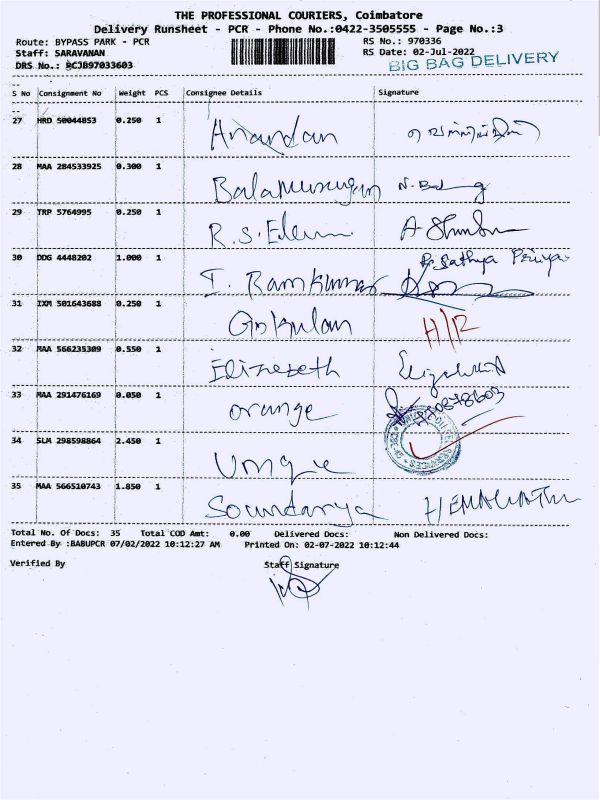 THE PROFESSIONAL COURIERS, Coimbatore
Delivery Runsheet - PCR - Phone No.:0422-3505555 - Page No.:3
Route: BYPASS PARK - PCR RS No.: 970336
Staff: SARAVANAN RS Date: 02-Jul-2022
DRS No.: BCJB97033603 BIG BAG DELIVERY
S No Consignment No Weight PCS Consignee Details Signature
27 HRD 50044853 0.250 1 Anandan
28 MAA 284533925 0.300 1 Balamurugan
29 TRP 5764995 0.250 1 R.S.
30 DDG 4448202 1.000 1 I. Ramkumar Sathya Priya
31 IXM 501643688 0.250 1 Gokulan H/R
32 MAA 566235309 0.550 1 Elizebeth
33 MAA 291476169 0.050 1 orange
34 SLM 298598864 2.450 1
35 MAA 566510743 1.850 1 Soundarya
Total No. Of Docs: 35 Total COD Amt: 0.00 Delivered Docs: Non Delivered Docs:
Entered By :BABUPCR 07/02/2022 10:12:27 AM Printed On: 02-07-2022 10:12:44
Verified By Staff Signature